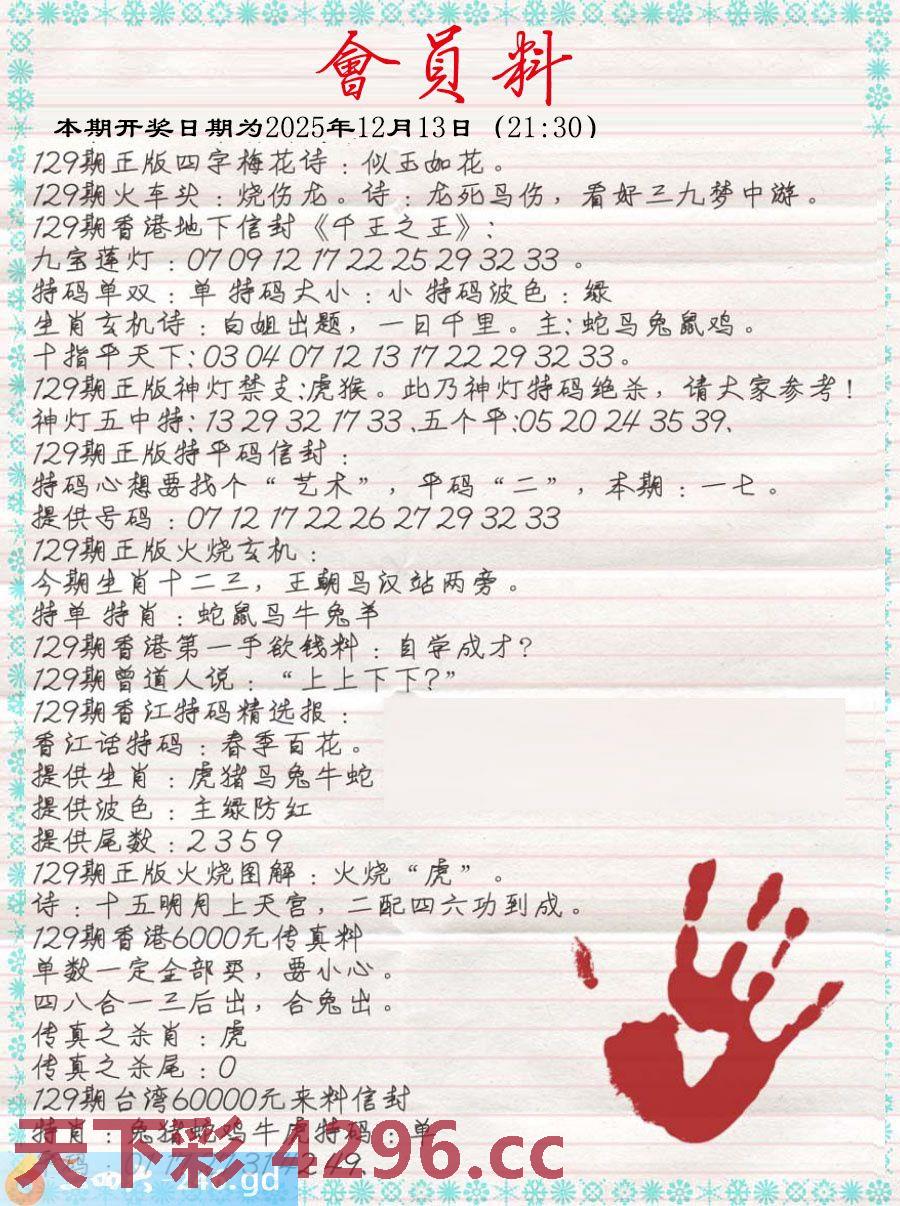 會員料
本期开奖日期为2025年12月13日（21:30）
129期正版四字梅花诗：似玉如花。
129期火车头：烧伤龙。诗：龙死鸟伤，看好三九梦中游。
129期香港地下信封《千王之王》：
九宝莲灯：07 09 12 17 22 25 29 32 33 。
特码单双：单 特码大小：小 特码波色：绿
生肖玄机诗：白姐出题，一日千里。主：蛇马兔鼠鸡。
十指平天下：03 04 07 12 13 17 22 29 32 33。
129期正版神灯禁支:虎猴。此乃神灯特码绝杀，请大家参考！
神灯五中特：13 29 32 17 33 、五个平:05 20 24 35 39、
129期正版特平码信封：
特码心想要找个“艺术”，平码“二”，本期：一七。
提供号码：07 12 17 22 26 27 29 32 33
129期正版火烧玄机：
今期生肖十二三，王朝马汉站两旁。
特单 特肖：蛇鼠马牛兔羊
129期香港第一手欲钱料：自学成才？
129期曾道人说：“上上下下？”
129期香江特码精选报：
香江话特码：春季百花。
提供生肖：虎猪马兔牛蛇
提供波色：主绿防红
提供尾数：2 3 5 9
129期正版火烧图解：火烧“虎”。
诗：十五明月上天宫，二配四六功到成。
129期香港6000元传真料
单数一定全部买，要小心。
四八合一三后出，合兔出。
传真之杀肖：虎
传真之杀尾：0
129期台湾60000元来料信封
特肖：兔猪蛇鸡牛虎特码：单
天下彩 4296.cc
246.gd